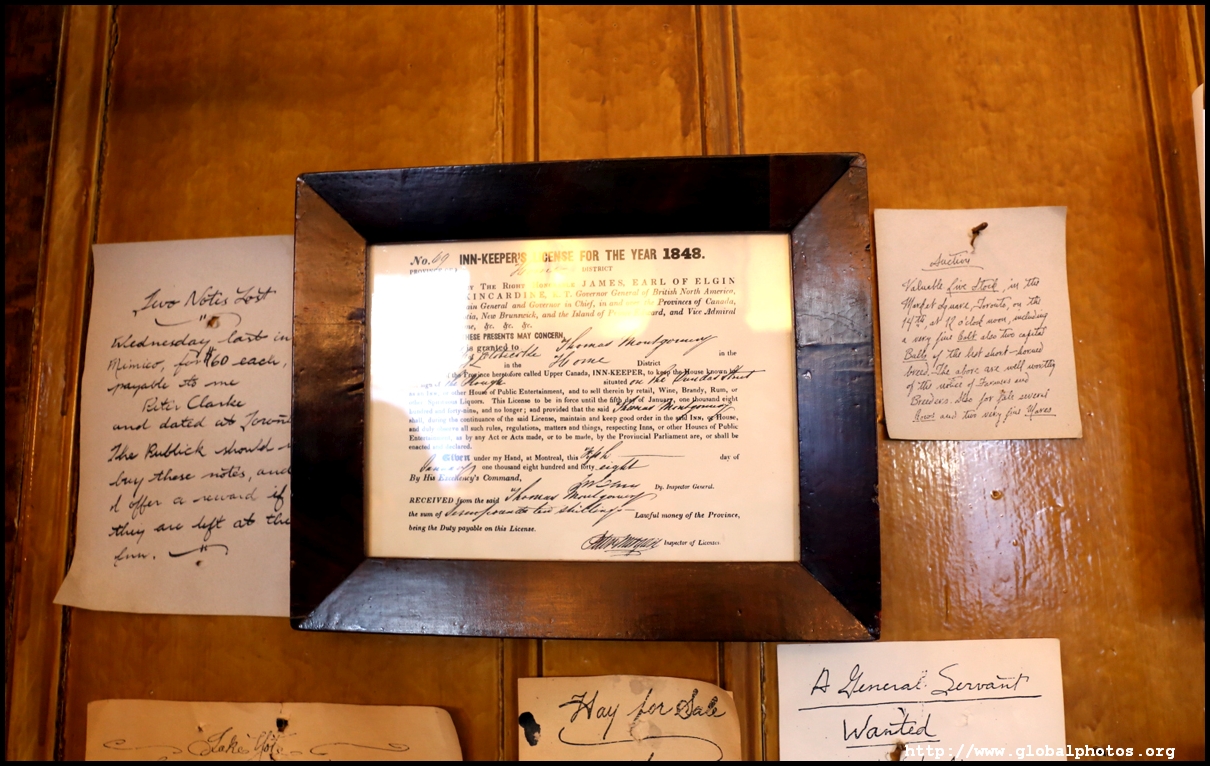 Two Notes Lost
Wednesday last in
Mimico, for $60 each,
payable to me
Peter Clarke
and dated at
The Publick should
buy these notes, and
I offer a reward if
they are left at the
Inn.
No. 69 INN-KEEPER'S LICENSE FOR THE YEAR 1848.
DISTRICT
THE RIGHT JAMES, EARL OF ELGIN
KINCARDINE, K.T. Governor General of British North America,
General and Governor in Chief, in and over the Provinces of Canada,
New Brunswick, and the Island of Edward, and Vice Admiral
&c. &c. &c.
THESE PRESENTS MAY CONCERN,
is granted to Thomas Montgomery
of Etobicoke in the
in the Home District
the Province heretofore called Upper Canada, INN-KEEPER, to keep the House known
sign of the Plough situated on the Dundas Street
as an Inn, or other House of Public Entertainment, and to sell therein by retail, Wine, Brandy, Rum, or
other Spirituous Liquors. This License to be in force until the fifth day of January, one thousand eight
hundred and forty-nine, and no longer; and provided that the said Thomas Montgomery
shall, during the continuance of the said License, maintain and keep good order in the said Inn, or House,
and duly observe all such rules, regulations, matters and things, respecting Inns, or other Houses of Public
Entertainment, as by any Act or Acts made, or to be made, by the Provincial Parliament are, or shall be
enacted and declared.
Given under my Hand, at Montreal, this Fifth day of
January one thousand eight hundred and forty eight
By His Excellency's Command,
Dy. Inspector General.
RECEIVED from the said Thomas Montgomery
the sum of Seven pounds ten shillings Lawful money of the Province,
being the Duty payable on this License.
Inspector of Licenses
Auction
Valuable Live Stock, in the
Market Square, Toronto, on the
14th, at 12 o'clock noon, including
a very fine Colt also two capital
Bulls of the best short-horned
breed. The above are well worthy
of the notice of Farmers and
Breeders. Also for Sale several
Cows and two very fine Mares
Hay for Sale
A General Servant
Wanted
http://www.globalphotos.org